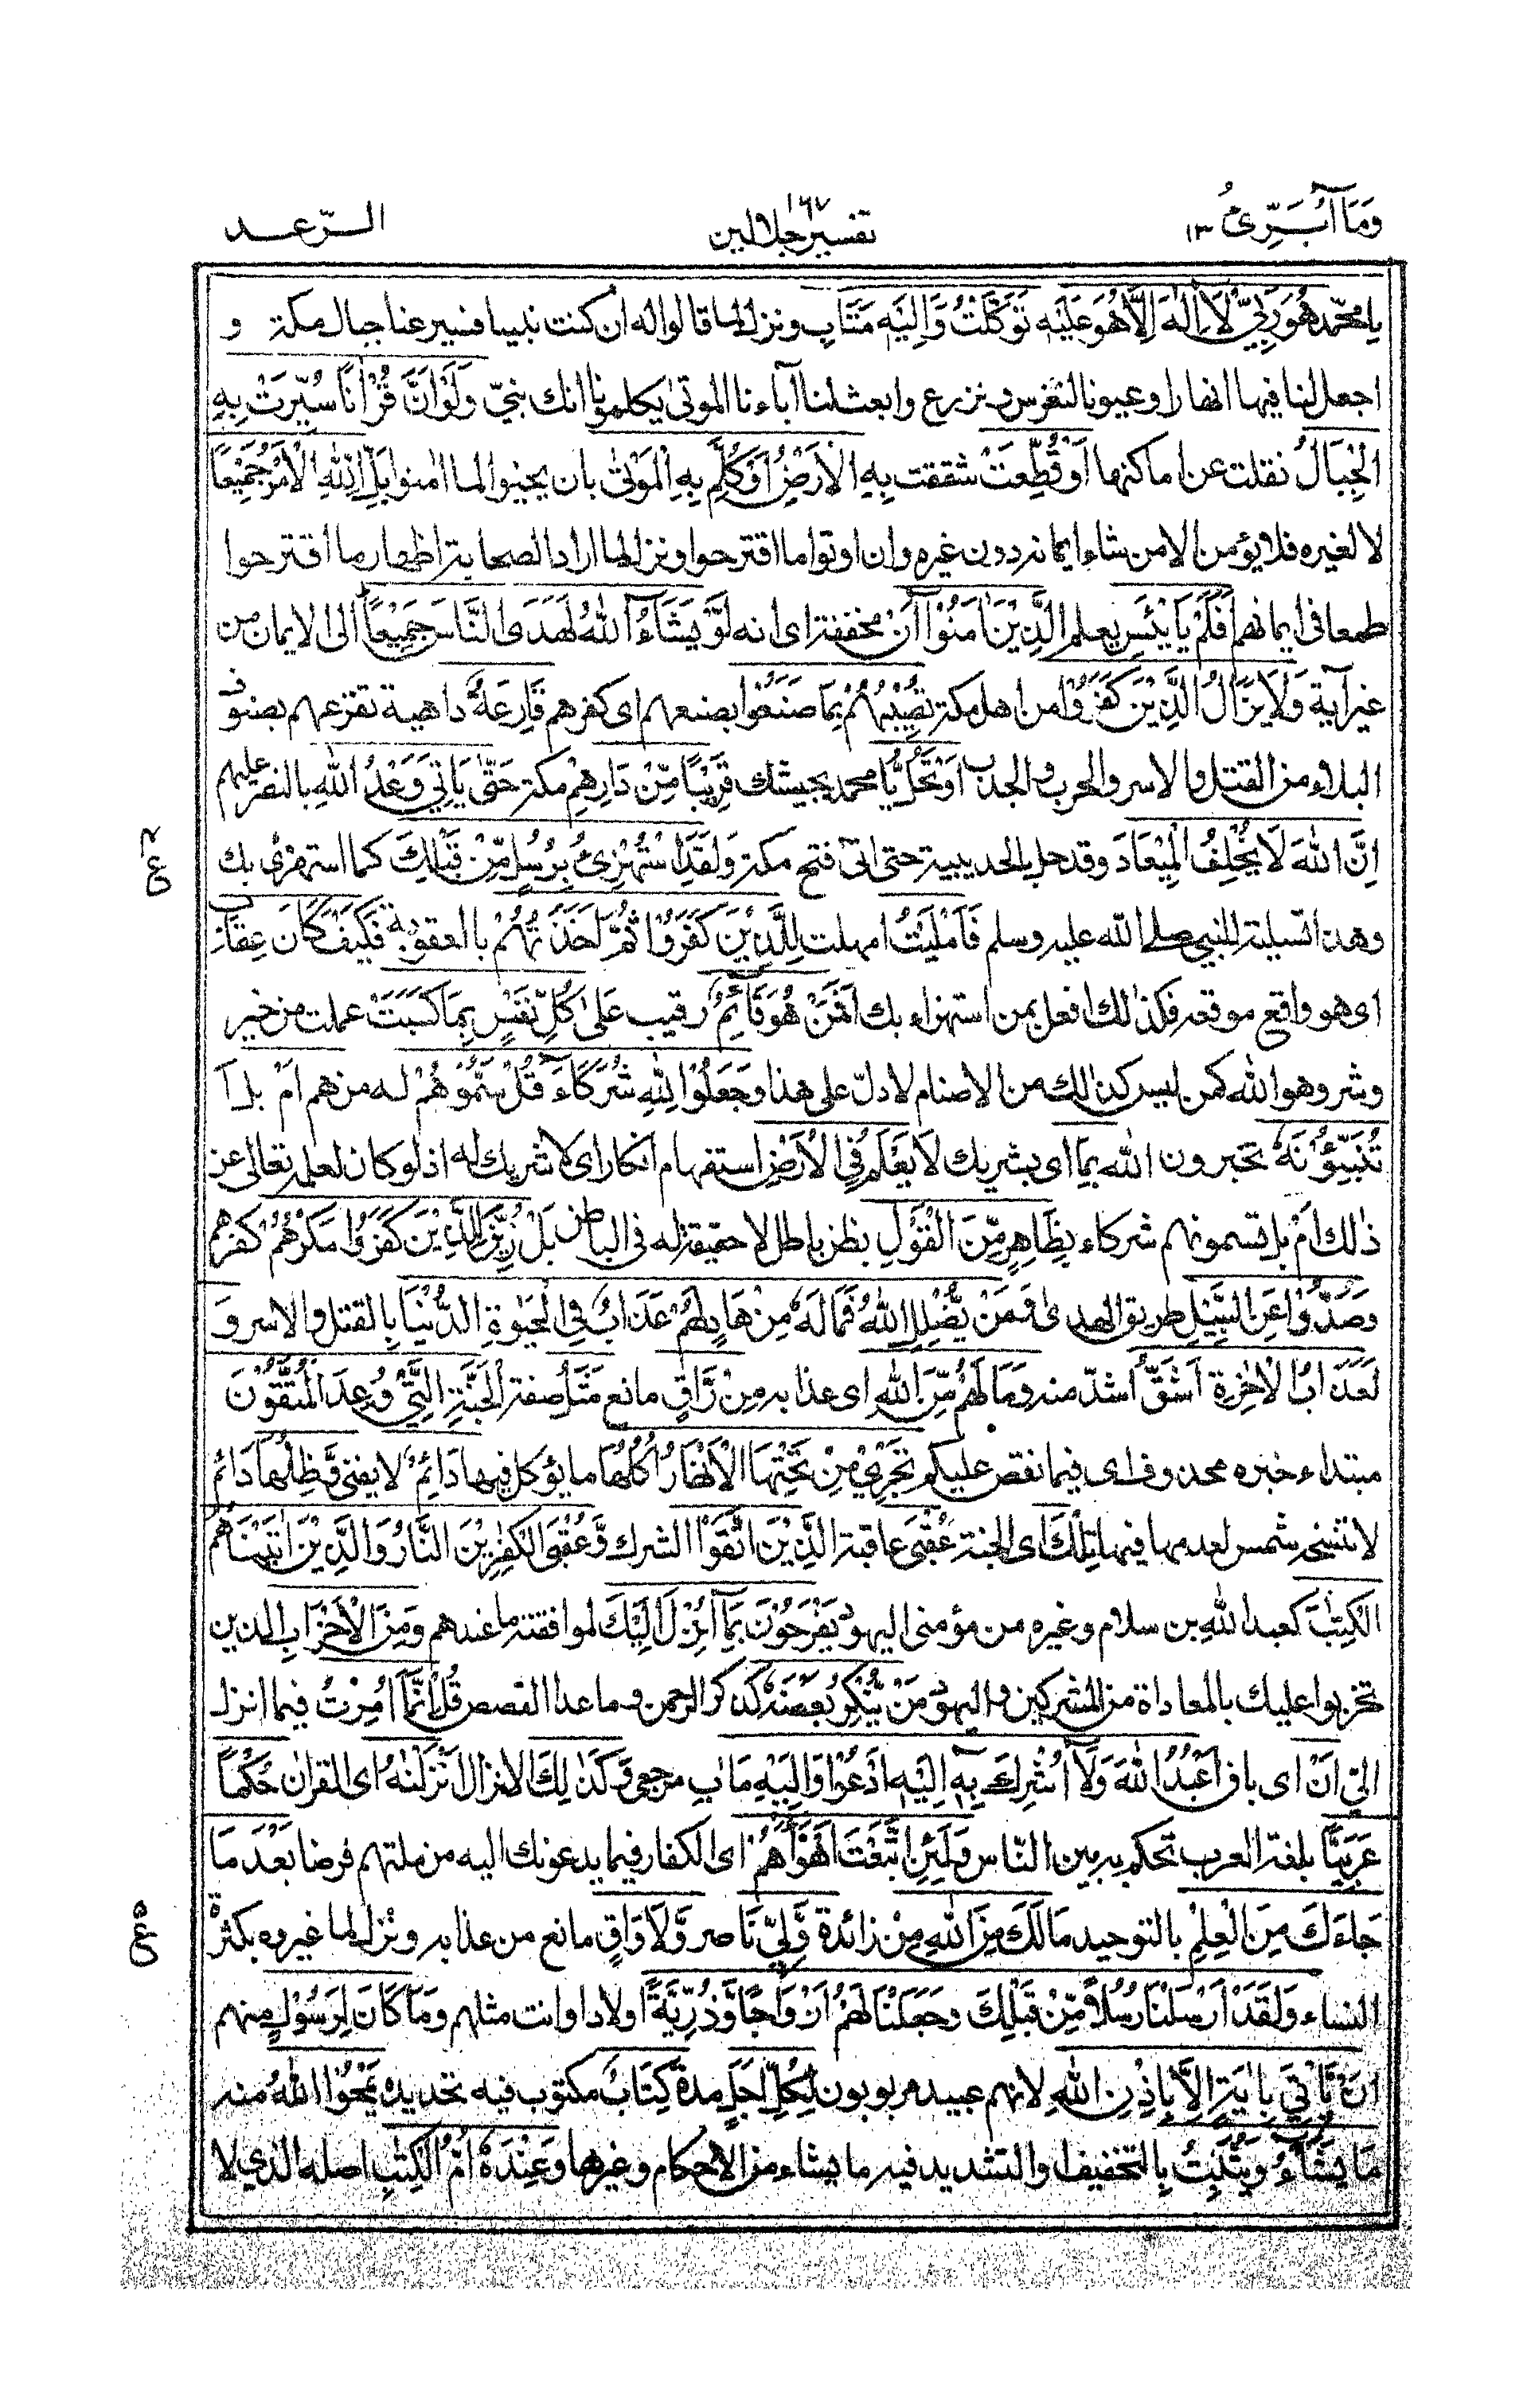 وَمَآ أُبَرِّئُ ١٣
١٦٧
تفسير جلالين
الرّعد
يا محمّد هُوَ رَبِّيْ لَآ اِلٰهَ اِلَّا هُوَ عَلَيْهِ تَوَكَّلْتُ وَاِلَيْهِ مَتَابِ ونزل لما قالوا له ان كنت نبيا فسير عنا جبال مكة و
اجعل لنا فيها انهارا وعيونا لنغرس و نزرع وابعث لنا آباءنا الموتى يكلمونا انك نبيّ وَلَوْ اَنَّ قُرْاٰنًا سُيِّرَتْ بِهِ
الْجِبَالُ نقلت عن اماكنها اَوْ قُطِّعَتْ شققت بِهِ الْاَرْضُ اَوْ كُلِّمَ بِهِ الْمَوْتٰى بان يحيوا لما اٰمنوا بَلْ لِلّٰهِ الْاَمْرُ جَمِيْعًا
لا لغيره فلا يؤمن الا من شاء ايمانه دون غيره وان اوتوا ما اقترحوا ونزل لما اراد الصحابة اظهار ما اقترحوا
طمعا فى ايمانهم اَفَلَمْ يَايْئَسِ يعلم الَّذِيْنَ اٰمَنُوْآ اَنْ مخففة اى انه لَوْ يَشَآءُ اللّٰهُ لَهَدَى النَّاسَ جَمِيْعًا الى الايمان من
غير آية وَلَا يَزَالُ الَّذِيْنَ كَفَرُوْا من اهل مكة تُصِيْبُهُمْ بِمَا صَنَعُوْا بصنعهم اى كفرهم قَارِعَةٌ داهية تقرعهم بصنوف
البلاء من القتل والاسر والحرب والجدب اَوْ تَحُلُّ يا محمد بجيشك قَرِيْبًا مِّنْ دَارِهِمْ مكة حَتّٰى يَاْتِيَ وَعْدُ اللّٰهِ بالنصر عليهم
اِنَّ اللّٰهَ لَا يُخْلِفُ الْمِيْعَادَ وقد حل بالحديبية حتى اتى فتح مكة وَلَقَدِ اسْتُهْزِئَ بِرُسُلٍ مِّنْ قَبْلِكَ كما استهزئ بك
ع
وهذا تسلية للنبي صلى الله عليه وسلم فَاَمْلَيْتُ امهلت لِلَّذِيْنَ كَفَرُوْا ثُمَّ اَخَذْتُهُمْ بالعقوبة فَكَيْفَ كَانَ عِقَابِ
اى هو واقع موقعه فكذٰلك افعل بمن استهزاء بك اَفَمَنْ هُوَ قَآئِمٌ رقيب عَلٰى كُلِّ نَفْسٍ بِمَا كَسَبَتْ عملت من خير
وشر وهو الله كمن ليس كذٰلك من الاصنام لا دلّ على هذا وَجَعَلُوْا لِلّٰهِ شُرَكَآءَ قُلْ سَمُّوْهُمْ له من هم اَمْ بل آ
تُنَبِّؤُنَهٗ تخبرون اللّٰه بِمَا اى بشريك لَا يَعْلَمُ فِي الْاَرْضِ استفهام انكار اى لا شريك له اذ لو كان لعلمه تعالى عن
ذٰلك اَمْ بل تسمونهم شركاء بِظَاهِرٍ مِّنَ الْقَوْلِ بظن باطل لا حقيقة له فى الباطن بَلْ زُيِّنَ لِلَّذِيْنَ كَفَرُوْا مَكْرُهُمْ كفرهم
وَصُدُّوْا عَنِ السَّبِيْلِ طريق الهدى وَمَنْ يُّضْلِلِ اللّٰهُ فَمَا لَهٗ مِنْ هَادٍ لَهُمْ عَذَابٌ فِي الْحَيٰوةِ الدُّنْيَا بالقتل والاسر وَ
لَعَذَابُ الْاٰخِرَةِ اَشَقُّ اشدّ منه وَمَا لَهُمْ مِّنَ اللّٰهِ اى عذابه مِنْ وَّاقٍ مانع مَثَلُ صفة الْجَنَّةِ الَّتِيْ وُعِدَ الْمُتَّقُوْنَ
مبتداء خبره محذوف اى فيما نقص عليكم تَجْرِيْ مِنْ تَحْتِهَا الْاَنْهَارُ اُكُلُهَا ما يؤكل فيها دَآئِمٌ لا يفنى وَّظِلُّهَا دَائِمٌ
لا تنسخه شمس لعدمها فيها تِلْكَ اى الجنة عُقْبَى عاقبة الَّذِيْنَ اتَّقَوْا الشرك وَّعُقْبَى الْكٰفِرِيْنَ النَّارُ وَالَّذِيْنَ اٰتَيْنَاهُمُ
الْكِتٰبَ كعبد اللّٰهِ بن سلام وغيره من مؤمنى اليهود يَفْرَحُوْنَ بِمَآ اُنْزِلَ اِلَيْكَ لموافقته ما عندهم وَمِنَ الْاَحْزَابِ الذين
تحزبوا عليك بالمعاداة من المشركين واليهود مَنْ يُّنْكِرُ بَعْضَهٗ كذكر الرحمن وما عدا القصص قُلْ اِنَّمَآ اُمِرْتُ فيما انزل
الىّ اَنْ اى بان اَعْبُدَ اللّٰهَ وَلَآ اُشْرِكَ بِهٖ اِلَيْهِ اَدْعُوْا وَاِلَيْهِ مَاٰبِ مرجعى وَكَذٰلِكَ الانزال اَنْزَلْنٰهُ اى القران حُكْمًا
عَرَبِيًّا بلغة العرب تحكم به بين النّاس وَلَئِنِ اتَّبَعْتَ اَهْوَآءَهُمْ اى الكفار فيما يدعونك اليه من ملتهم فرضا بَعْدَ مَا
جَآءَكَ مِنَ الْعِلْمِ بالتوحيد مَا لَكَ مِنَ اللّٰهِ مِنْ زائدة وَّلِيٍّ ناصر وَّلَا وَاقٍ مانع من عذابه ونزل لما عيروه بكثرة
ع
النساء وَلَقَدْ اَرْسَلْنَا رُسُلًا مِّنْ قَبْلِكَ وَجَعَلْنَا لَهُمْ اَزْوَاجًا وَّذُرِّيَّةً اولادا وانت مثلهم وَمَا كَانَ لِرَسُوْلٍ منهم
اَنْ يَّاْتِيَ بِاٰيَةٍ اِلَّا بِاِذْنِ اللّٰهِ لانهم عبيد مربوبون لِكُلِّ اَجَلٍ مدة كِتَابٌ مكتوب فيه تحديده يَمْحُوْا اللّٰهُ منه
مَا يَشَآءُ وَيُثْبِتُ بالتخفيف والتشديد فيه ما يشاء من الاحكام وغيرها وَعِنْدَهٗ اُمُّ الْكِتٰبِ اصله الذي لا